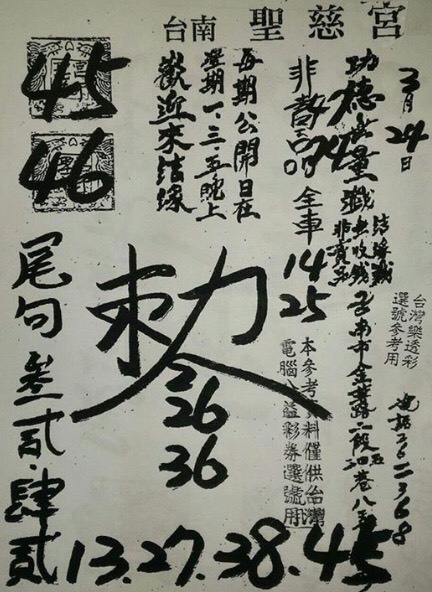 台南 聖慈宮
3月24日
台灣樂透彩
選號參考用
結緣籤
無收錢
非賣品
功德無量籤
非賣品 全車
14
25
本參考資料僅供台灣
電腦公益彩券選號用
每期公開日在
星期一.三.五晚上
歡迎來結緣
45
46
敕令
26
36
尾句 叁貳.肆貳
13.27.38.45